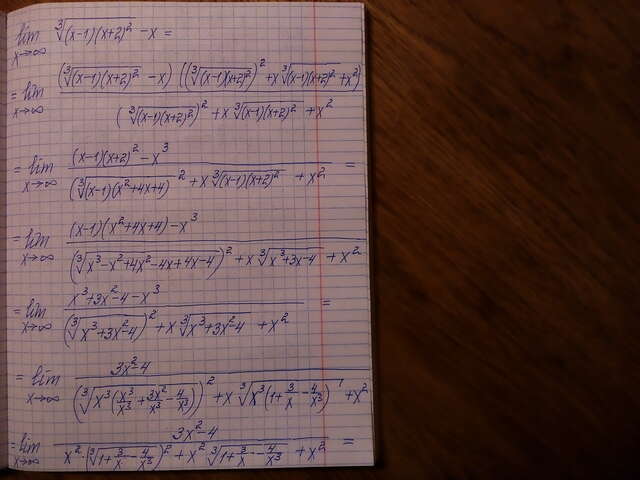 lim x→∞ ∛((x-1)(x+2)²) - x =
= lim x→∞ (∛((x-1)(x+2)²) - x) ((∛((x-1)(x+2)²))² + x ∛((x-1)(x+2)²) + x²) / ((∛((x-1)(x+2)²))² + x ∛((x-1)(x+2)²) + x²)
= lim x→∞ ((x-1)(x+2)² - x³) / ((∛((x-1)(x²+4x+4)))² + x ∛((x-1)(x+2)²) + x²) =
= lim x→∞ ((x-1)(x²+4x+4) - x³) / ((∛(x³-x²+4x²-4x+4x-4))² + x ∛(x³+3x-4) + x²)
= lim x→∞ (x³+3x²-4-x³) / ((∛(x³+3x²-4))² + x ∛(x³+3x²-4) + x²) =
= lim x→∞ (3x²-4) / ((∛(x³(x³/x³ + 3x²/x³ - 4/x³)))² + x ∛(x³(1 + 3/x - 4/x³)) + x²)
= lim x→∞ (3x²-4) / (x²·(∛(1 + 3/x - 4/x³))² + x² ∛(1 + 3/x - 4/x³) + x²) =